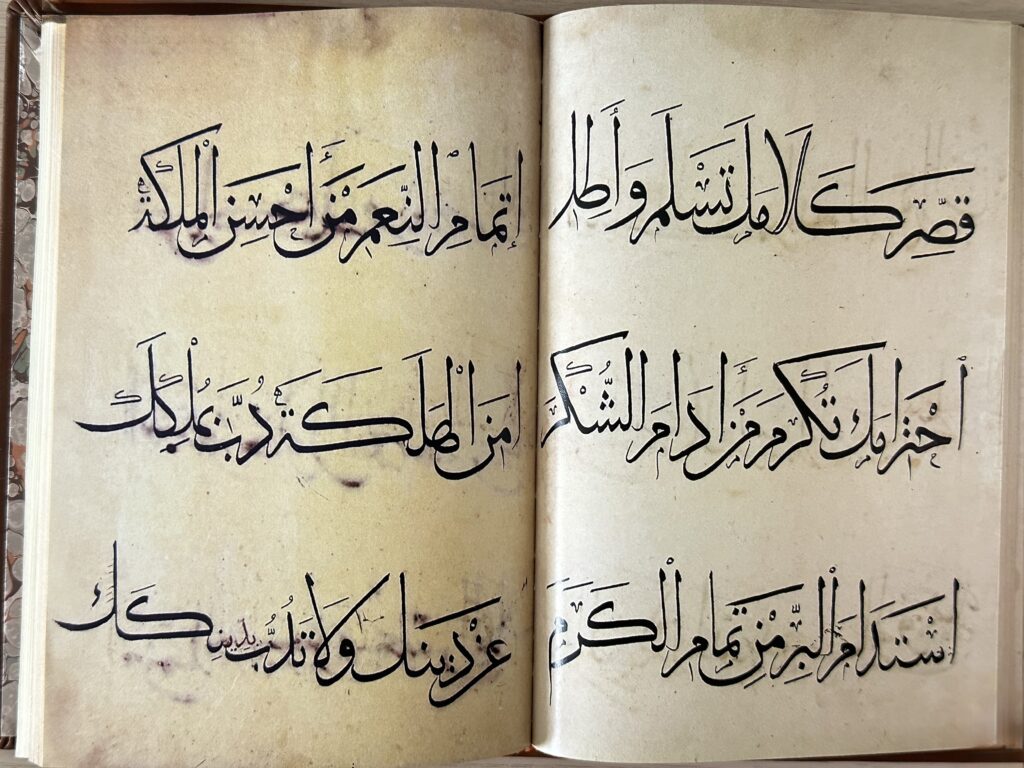 قصِّر كَلامك تَسْلَم وَأَطِل
احْترامك تُكرم مَن ادام الشُّكْرَ
اسْتَدَامَ البِرِّ مِن تمام الكَرَم
إتمام النِّعَم مِنْ أَحْسَنِ الْمَلَكَة
امن الْهَلَكَة دُبَّ بمُلْكِكَ
عَنْ دينك وَلَا تَدُبّ بدينِك